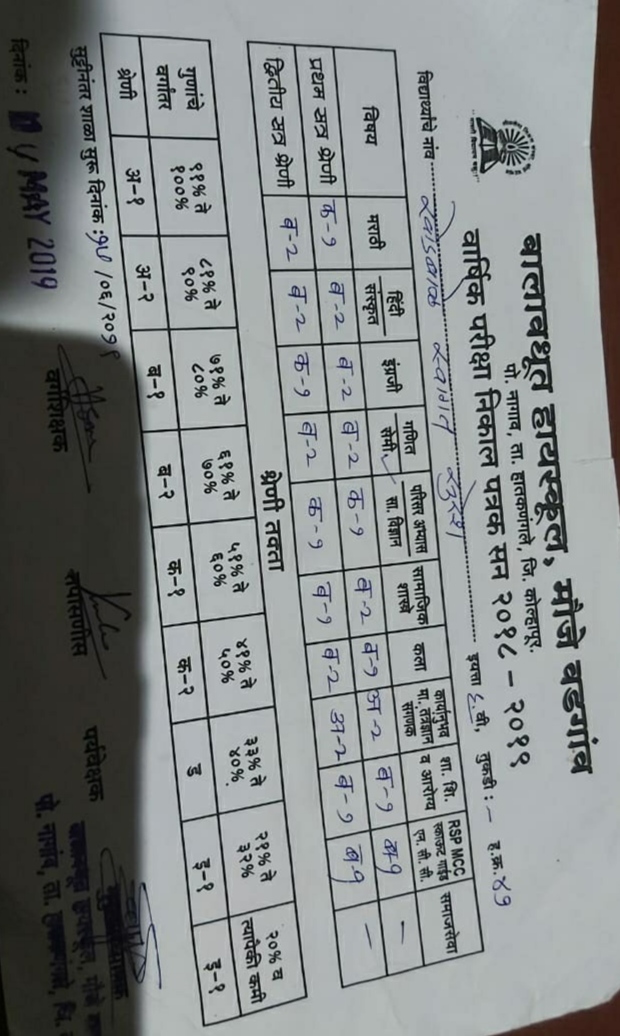 बालावधूत हायस्कूल, मौजे वडगांव
पो. नागाव, ता. हातकणंगले, जि. कोल्हापूर.
वार्षिक परीक्षा निकाल पत्रक सन २०१८ – २०१९
इयत्ता ६ वी, तुकडी : – ह.क्र. ४७
विद्यार्थ्याचे नांव स्वागत
विषय मराठी हिंदी संस्कृत इंग्रजी गणित सेमी परिसर अभ्यास सा. विज्ञान सामाजिक शास्त्रे कला कार्यानुभव मा. तंत्रज्ञान संगणक शा. शि. व आरोग्य RSP MCC स्काऊट गाईड एन. सी. सी. समाजसेवा
प्रथम सत्र श्रेणी क-१ ब-२ ब-२ ब-२ क-१ ब-२ ब-१ अ-२ ब-१ –
द्वितीय सत्र श्रेणी ब-२ ब-२ क-१ ब-२ क-१ ब-१ ब-२ अ-२ ब-१ –
श्रेणी तक्ता
गुणांचे वर्गांतर ९१% ते १००% ८१% ते ९०% ७१% ते ८०% ६१% ते ७०% ५१% ते ६०% ४१% ते ५०% ३३% ते ४०% २१% ते ३२% २०% व त्यापैकी कमी
श्रेणी अ-१ अ-२ ब-१ ब-२ क-१ क-२ ड इ-१ इ-१
सुट्टीनंतर शाळा सुरू दिनांक : /०६/२०१९
वर्गशिक्षक तपासणीस पर्यवेक्षक
दिनांक : MAY 2019
पो. नागांव, ता.